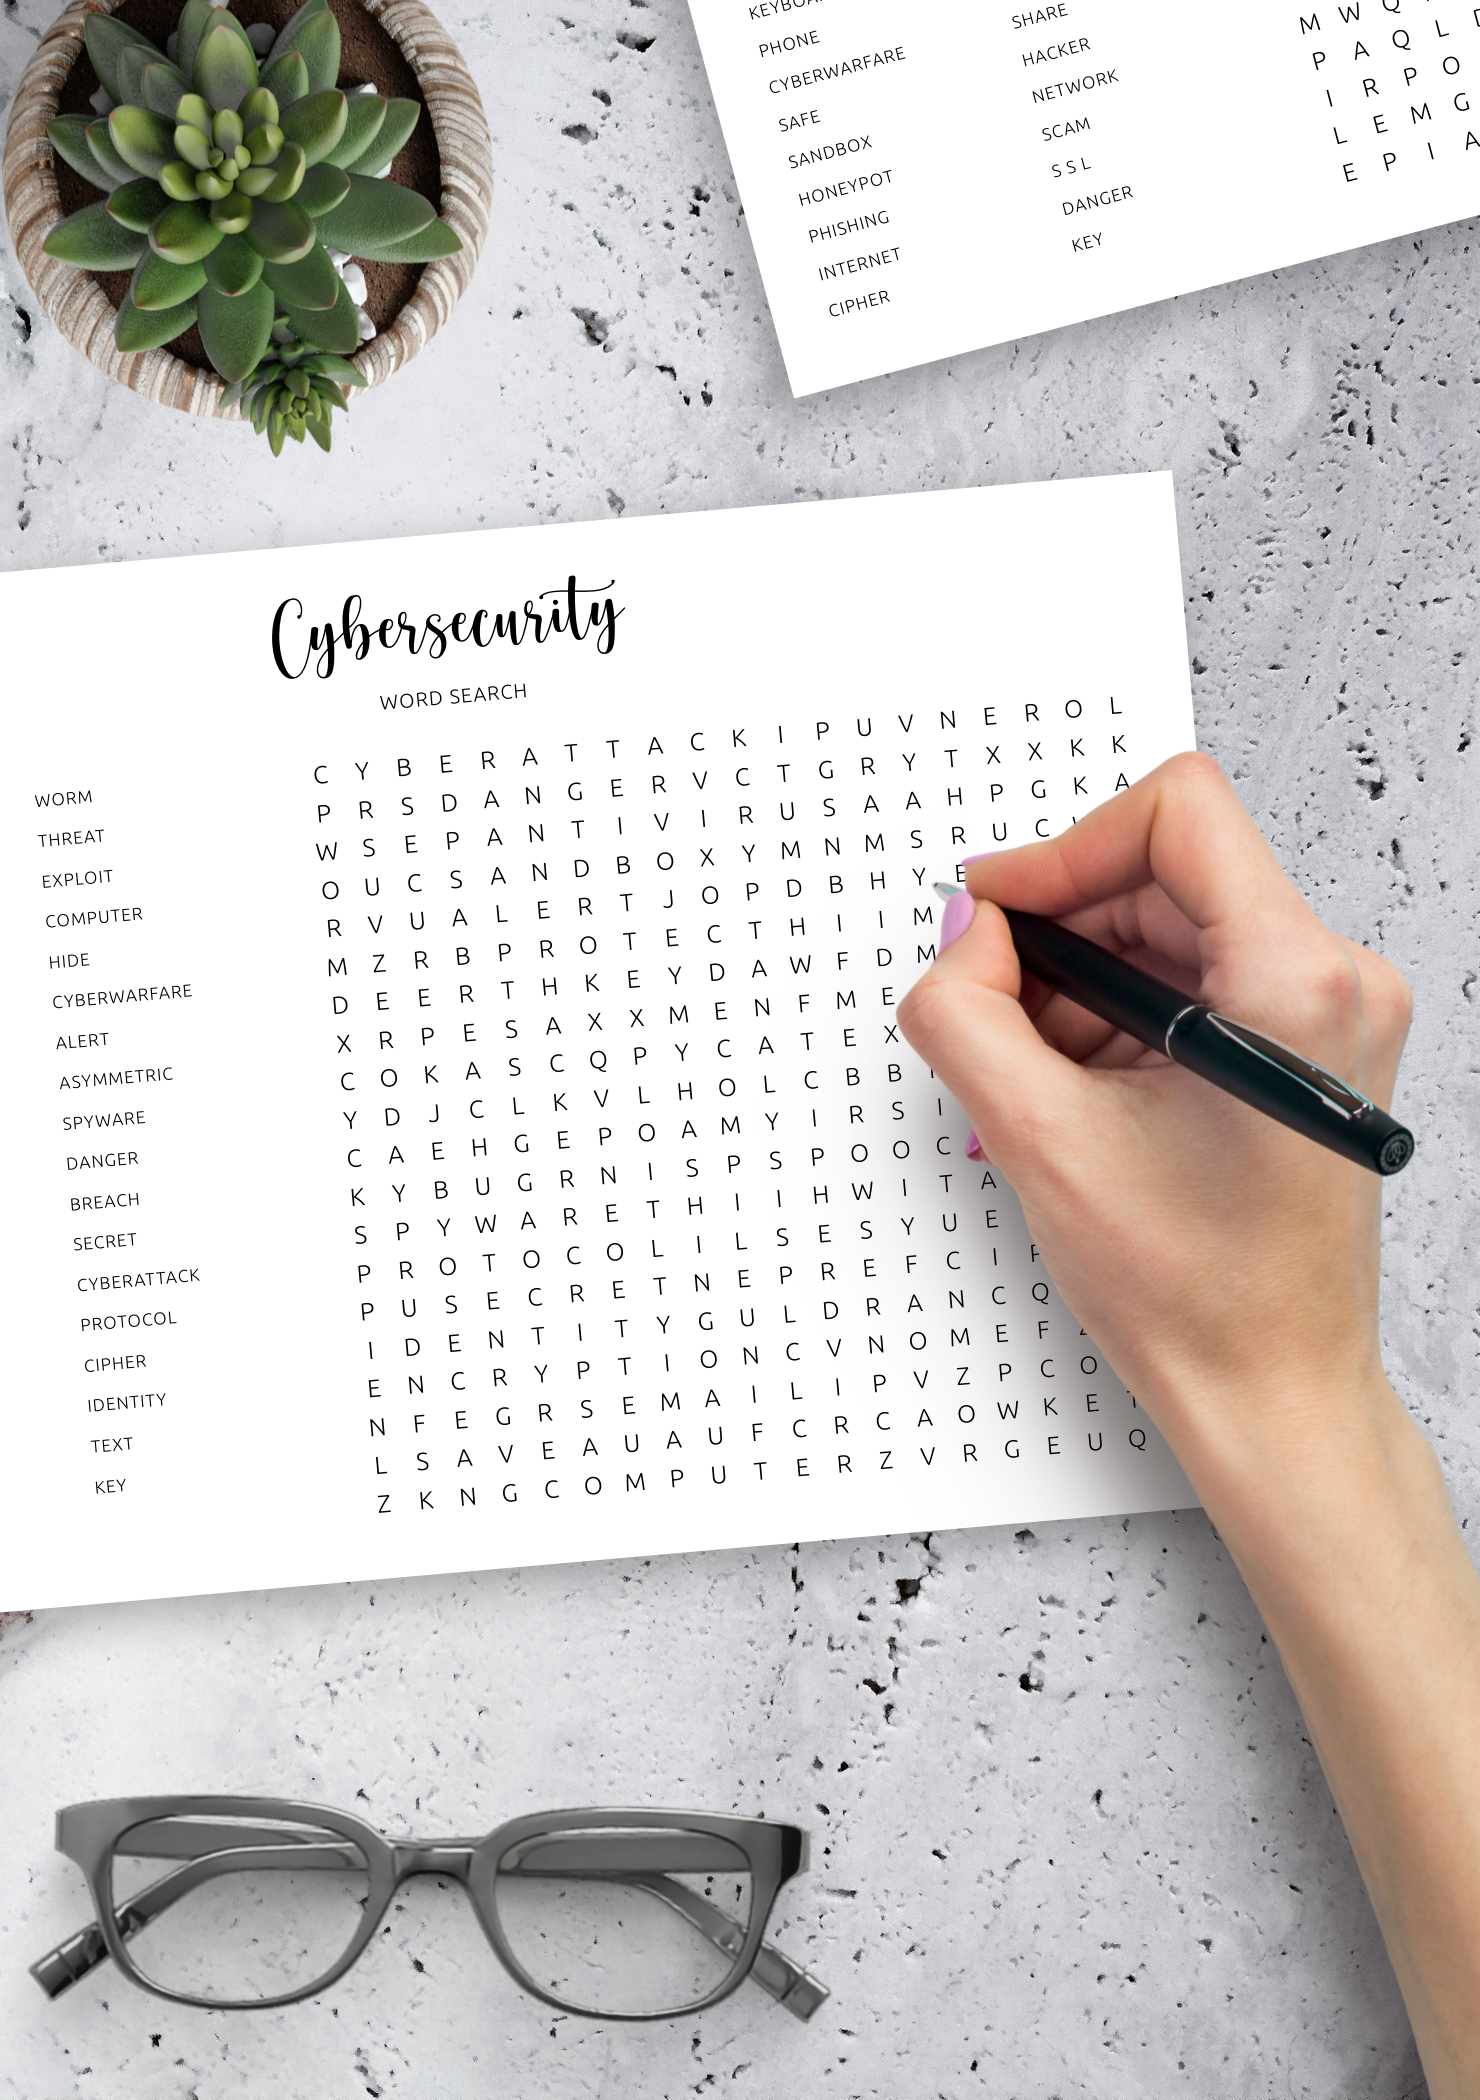 PHONE
CYBERWARFARE
SAFE
SANDBOX
HONEYPOT
PHISHING
INTERNET
CIPHER
SHARE
HACKER
NETWORK
SCAM
S S L
DANGER
KEY
M W Q
P A Q L
I R P O
L E M G
E P I A
Cybersecurity
WORD SEARCH
WORM
THREAT
EXPLOIT
COMPUTER
HIDE
CYBERWARFARE
ALERT
ASYMMETRIC
SPYWARE
DANGER
BREACH
SECRET
CYBERATTACK
PROTOCOL
CIPHER
IDENTITY
TEXT
KEY
C Y B E R A T T A C K I P U V N E R O L
P R S D A N G E R V C T G R Y T X X K K
W S E P A N T I V I R U S A A H P G K A
O U C S A N D B O X Y M N M S R U C
R V U A L E R T J O P D B H Y E
M Z R B P R O T E C T H I I M
D E E R T H K E Y D A W F D M
X R P E S A X X M E N F M E
C O K A S C Q P Y C A T E X
Y D J C L K V L H O L C B B
C A E H G E P O A M Y I R S I
K Y B U G R N I S P S P O O C
S P Y W A R E T H I I H W I T A
P R O T O C O L I L S E S Y U E
P U S E C R E T N E P R E F C I
I D E N T I T Y G U L D R A N C Q
E N C R Y P T I O N C V N O M E F
N F E G R S E M A I L I P V Z P C O
L S A V E A U A U F C R C A O W K E
Z K N G C O M P U T E R Z V R G E U Q